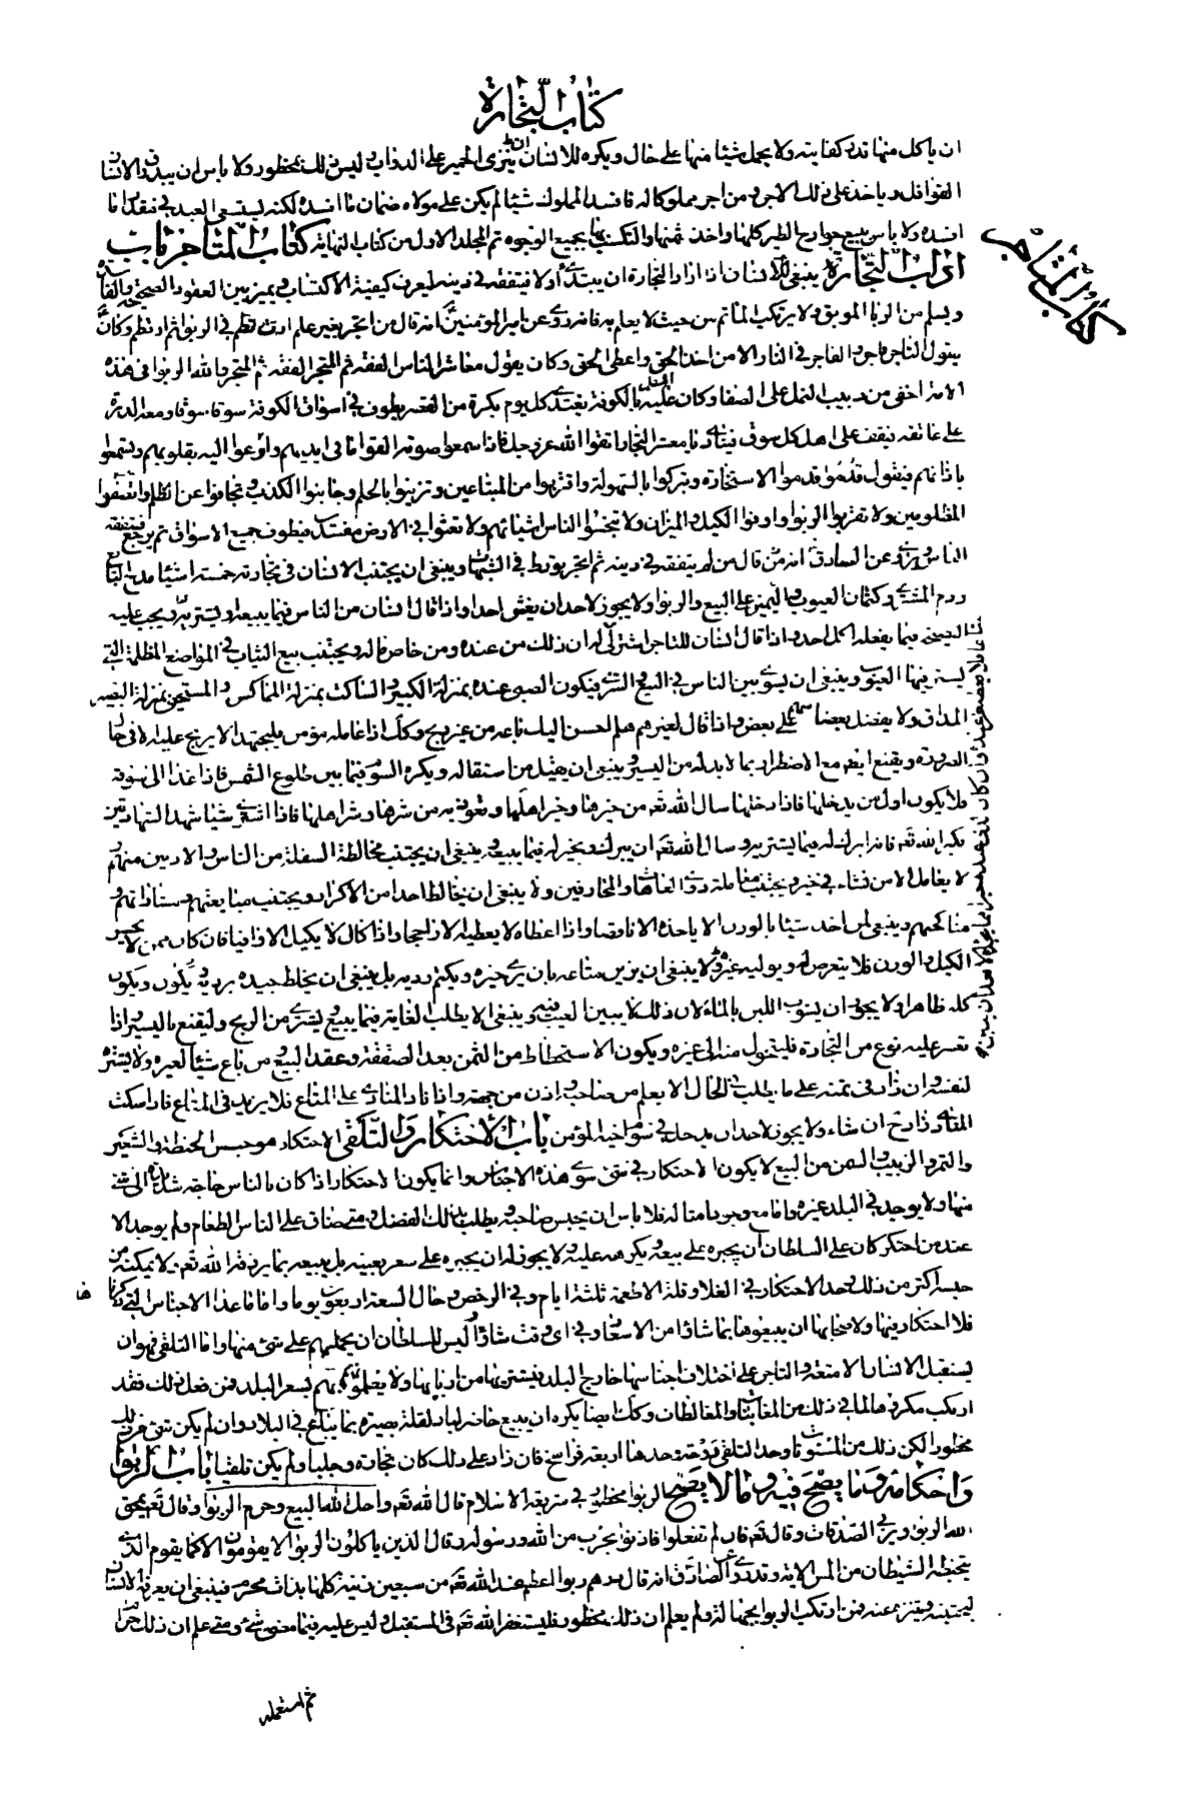 كتاب التجارة
ان ياكل منها قدر كفايته ولا يحمل شيئا منها على حال ويكره للانسان ان ينزى الحمير على الدواب وليس ذلك بمحظور ولا باس ان يبذرق الانسان
القوافل وياخذ على ذلك الاجر ومن اجر مملوكا له فافسد المملوك شيئا لم يكن على مولاه ضمان ما افسده لكنه يستسعى العبد في مقدار ما
افسده ولا باس ببيع جوارح الطير كلها واخذ ثمنها والتكسب بها بجميع الوجوه تم المجلد الاول من كتاب النهاية كتاب المتاجر باب
اداب التجارة ينبغي للانسان اذا اراد التجارة ان يبتدئ اولا فيتفقه في دينه ليعرف كيفية الاكتساب ويميز بين العقود الصحيحة والفاسدة
ويسلم من الربا الموبق ولا يرتكب الماثم من حيث لا يعلم به فانه روى عن امير المؤمنين انه قال من اتجر بغير علم ارتطم في الربوا ثم ارتطم وكان
يقول التاجر فاجر والفاجر في النار الا من اخذ الحق واعطى الحق وكان يقول معاشر الناس الفقه ثم المتجر الفقه ثم المتجر والله الربوا في هذه
الامة اخفى من دبيب النمل على الصفا وكان عليه السلم بالكوفة يغتدى كل يوم بكرة من القصر يطوف في اسواق الكوفة سوقا سوقا ومعه الدرة
على عاتقه فيقف على اهل كل سوق فينادى يا معشر التجار اتقوا الله عز وجل فاذا سمعوا صوته القوا ما في ايديهم وارعوا اليه بقلوبهم ويسمعوا
باذانهم فيقول قدموا الاستخارة وتبركوا بالسهولة واقتربوا من المبتاعين وتزينوا بالحلم وجانبوا الكذب وتجافوا عن الظلم وانصفوا
المظلومين ولا تقربوا الربوا واوفوا الكيل والميزان ولا تبخسوا الناس اشيائهم ولا تعثوا في الارض مفسدين فيطوف جميع الاسواق ثم يرجع فيقعد
للناس وروى عن الصادق انه قال من لم يتفقه في دينه ثم اتجر تورط في الشبهات وينبغي ان يجتنب الانسان في تجارته خمسة اشياء مدح البايع
وذم المشترى وكتمان العيوب واليمين على البيع والربوا ولا يجوز لاحد ان يغش احدا واذا قال انسان من الناس فيما يبيعه ويشتريه ويجب عليه
النصيحة فيما يفعله لكل احد واذا قال انسان للتاجر اشتر لي ان ذلك من عنده ومن خاص ماله ويجتنب بيع الثياب في المواضع المظلمة التي
يستر فيها العيب وينبغي ان يسوى بين الناس في البيع والشرى فيكون الصبى عنده بمنزلة الكبير والساكت بمنزلة المماكس والمستحيى بمنزلة البصير
المداق ولا يفضل بعضا منهم على بعض واذا قال لغيره هلم احسن اليك باعه من غير ربح وكذلك اذا عامله مؤمن فليجتهد الا يربح عليه الا في حال
الضرورة ويقنع ايضا مع الاضطرار بما لا بد له من اليسير وينبغي ان يقيل من استقاله ويكره السوم فيما بين طلوع الفجر الى طلوع الشمس فاذا غدا الى سوقه
فلا يكون اول من يدخلها فاذا دخلها سال الله تعه من خيرها وخير اهلها وتعوذ به من شرها وشر اهلها فاذا اشترى شيئا شهد الشهادتين
وكبر الله تعه فانه ابرك له فيما يشتريه وسال الله تعه ان يبارك ويخير له فيما يبيعه وينبغي ان يجتنب مخالطة السفلة من الناس والادنين منهم و
لا يعامل الا من نشاء في خير ويجتنب معاملة ذوى العاهات والمحارفين ولا ينبغي ان يخالط احدا من الاكراد ويجتنب مبايعتهم ومشاراتهم و
مناكحتهم وينبغي لمن اخذ شيئا بالوزن الا ياخذه الا ناقصا واذا اعطاه لا يعطيه الا راجحا واذا كال لا يكيل الا وافيا فان كان ممن لا يحسن
الكيل والوزن فلا يتعرض له ويوليه غيره ولا ينبغي ان يزين متاعه بان يرى خيره ويكتم رديه بل ينبغي ان يخلط جيده برديه ويكون
كله ظاهرا ولا يجوز ان يشوب اللبن بالماء لان ذلك لا يبين العيب فيه وينبغي الا يطلب الغاية فيما يبيع ويشترى من الربح وليقنع باليسير واذا
تعسر عليه نوع من التجارة فليتحول منه الى غيره ويكره الاستحطاط من الثمن بعد الصفقة وعقد البيع ومن باع شيئا لغيره ولا يشتره
لنفسه وان زاد في ثمنه على ما يطلب في الحال الا بعلم من صاحبه واذن من جهته واذا نادى المنادى على المتاع فلا يزيد في المتاع فاذا سكت
المنادى زاد ح ان شاء ولا يجوز لاحد ان يدخل في سوم اخيه المؤمن باب الاحتكار والتلقى الاحتكار هو حبس الحنطة والشعير
والتمر والزبيب والسمن من البيع لا يكون الاحتكار في شئ سوى هذه الاجناس وانما يكون الاحتكار اذا كان بالناس حاجة شديدة الى شئ
منها ولا يوجد في البلد غيره واما مع وجود امثاله فلا باس ان يحبس صاحبه ويطلب بذلك الفضل ومتى ضاق على الناس الطعام ولم يوجد الا
عند من احتكر كان على السلطان ان يجبره على بيعه ويكرهه عليه ولا يجوز له ان يجبره على سعر بعينه بل يبيعه بما يرزقه الله تعه ولا يمكنه من
حبسه اكثر من ذلك وحد الاحتكار في الغلا وقلة الاطعمة ثلثة ايام وفي الرخص وحال السعة اربعون يوما واما ما عدا الاجناس التي ذكرناها
فلا احتكار فيها ولاصحابها ان يبيعوها بما شاؤا من الاسعار في اى وقت شاؤا ليس للسلطان ان يحملهم على شئ منها واما التلقى فهو ان
يستقبل الانسان الامتعة والتاجر على اختلاف اجناسها خارج البلد فيشتريها من اربابها ولا يعلمون هم بسعر البلد فمن فعل ذلك فقد
ارتكب مكروها لما في ذلك من المغابنات والمغالطات وكذلك ايضا يكره ان يبيع حاضر لباد لقلة بصيرته بما يباع في البلاد وان لم يكن شئ من ذلك
محظورا لكن ذلك من المسنونات وحد التلقى روحة وحدها اربعة فراسخ فان زاد على ذلك كان تجارة وجلبا ولم يكن تلقيا باب الربوا
واحكامه وما يصح فيه وما لا يصح الربوا محظور في شريعة الاسلام قال الله تعه واحل الله البيع وحرم الربوا وقال تعه يمحق
الله الربوا ويربى الصدقات وقال تعه فان لم تفعلوا فاذنوا بحرب من الله ورسوله وقال الذين ياكلون الربوا لا يقومون الا كما يقوم الذى
يتخبطه الشيطان من المس الاية وقد روى عن الصادق انه قال درهم ربوا اعظم عند الله تعه من سبعين زنية كلها بذات محرم فينبغي ان يعرفه الانسان
ليجتنبه ويتنزه عنه فمن ارتكب الربوا بجهالة ولم يعلم ان ذلك محظور فليستغفر الله تعه في المستقبل وليس عليه فيما مضى شئ ومتى علم ان ذلك حرام
كتاب المتاجر
ثم استعمله